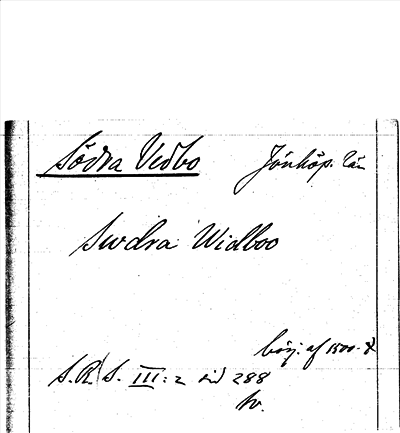 Södra Vedbo Jönköp. län
Swdra Widboo
börj. af 1500-t
S.R.S. III:2 sid 288
hv.